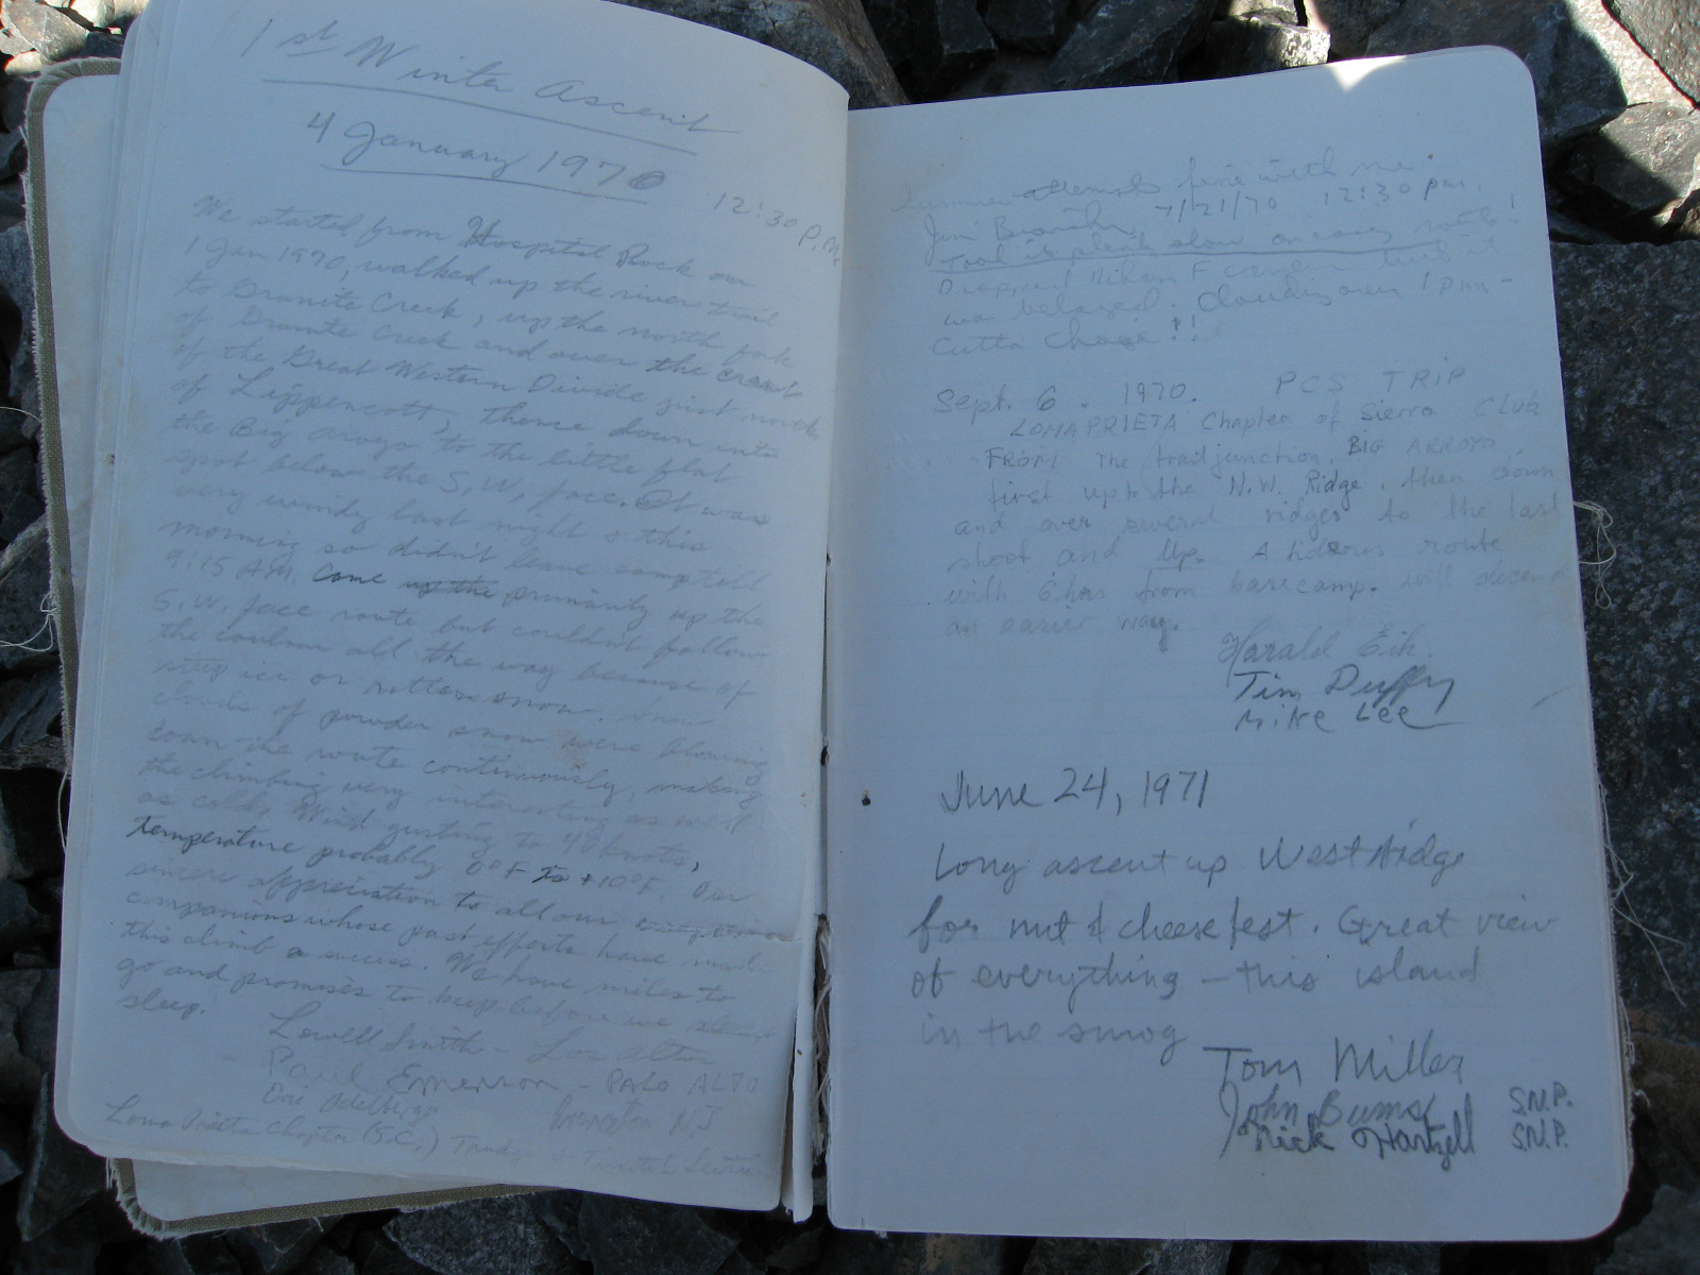 1st Winter Ascent
4 January 1970
12:30 P.M.
We started from Hospital Rock on
1 Jan 1970, walked up the river trail
to Granite Creek, up the north fork
of Granite Creek and over the crest
of the Great Western Divide just north
of Lippencott, thence down into
the Big Arroyo to the little flat
spot below the S.W. face. It was
very windy last night & this
morning so didn't leave camp till
9:15 AM. Came up the primarily up the
S.W. face route but couldn't follow
the couloir all the way because of
steep ice or rotten snow.
clouds of powder snow were blowing
down the route continuously, making
the climbing very interesting as well
as cold. Wind gusting to 40 knots,
temperature probably 0°F to +10°F. Our
sincere appreciation to all our
companions whose past efforts have made
this climb a success. We have miles to
go and promises to keep before we sleep
sleep.
Lowell Smith - Los Altos
Paul Emerson - PALO ALTO
N.J.
Loma Prieta Chapter (S.C.)
fine with me
Jim 7/21/70 12:30 pm.
slow on easy
Dropped
was belayed. Cloudy over 1 pm -
Cutta Chase!!
Sept. 6. 1970. PCS TRIP
LOMAPRIETA Chapter of Sierra CLUB
FROM The trail junction, BIG ARROYO,
first up to the N.W. Ridge, then down
and over several ridges to the last
shoot and Up. A hideous route
with 6 hrs from basecamp. will descend
an easier way.
Harald Eik.
Tim Duffy
Mike Lee
June 24, 1971
Long ascent up West Ridge
for nut & cheese fest. Great view
of everything – this island
in the smog
Tom Miller
John Bums S.N.P.
Nick Hartzell S.N.P.